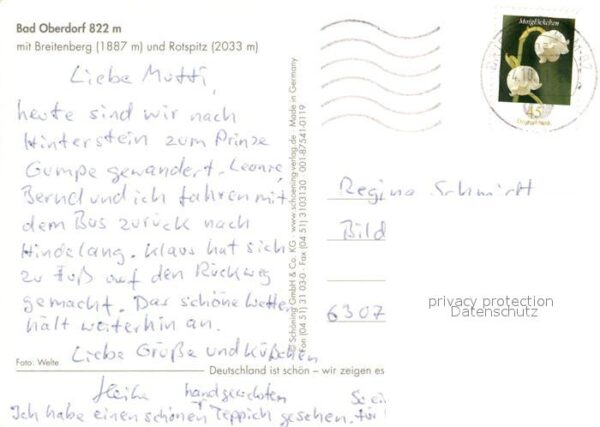 Bad Oberdorf 822 m
mit Breitenberg (1887 m) und Rotspitz (2033 m)
Liebe Mutti,
heute sind wir nach
Hinterstein zum Prinze
Gumpe gewandert. Leonie
Bernd und ich fahren mit
dem Bus zurück nach
Hindelang. Klaus hat sich
zu Fuß auf den Rückweg
gemacht. Das schöne Wetter
hält weiterhin an.
Liebe Grüße und Küßchen
Foto: Welte
Deutschland ist schön – wir zeigen es
Heike
handgewebten
So ein
Ich habe einen schönen Teppich gesehen. für
© Schöning GmbH & Co. KG · www.schoening-verlag.de · Made in Germany
Fon (04 51) 31 03-0 · Fax (04 51) 3103130 · 001-87541-0119
Maiglöckchen
45
Deutschland
Regina Schmidt
Bild
6307
privacy protection
Datenschutz